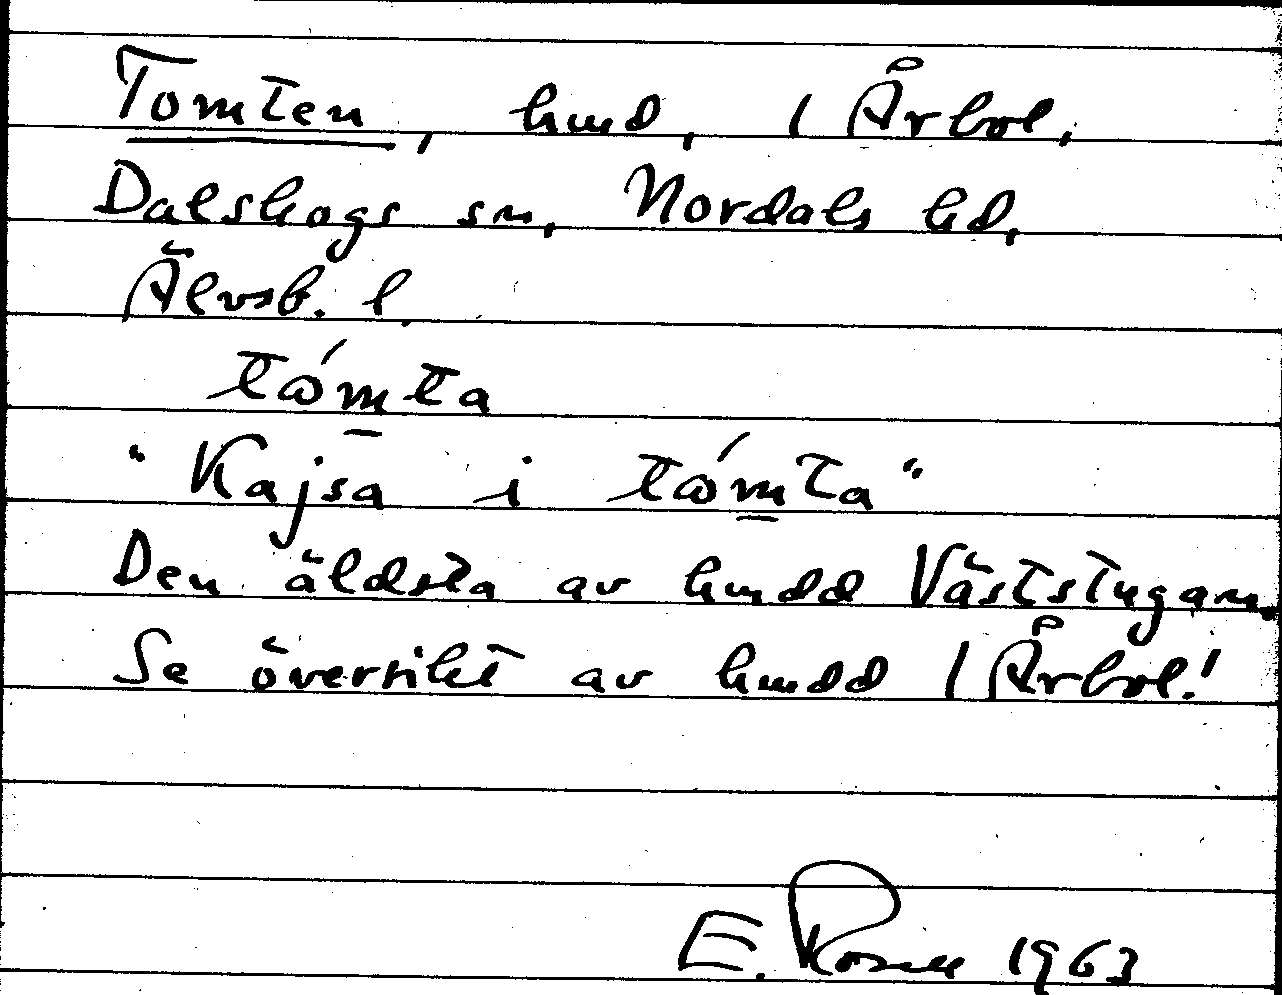 Tomten, hmd, 1 Årbol,
Dalskogs sn, Nordals hd,
Älvsb. l.
tɷ́m̱ta
"Kajsa i tɷ́m̱ta"
Den äldsta av hmdd Väststugan.
Se översikt av hmdd 1 Årbol!
E. Rosell 1963